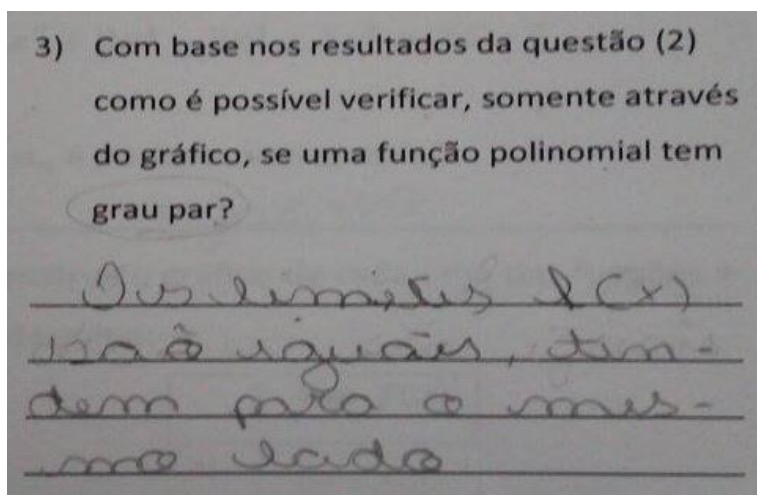 3) Com base nos resultados da questão (2)
como é possível verificar, somente através
do gráfico, se uma função polinomial tem
grau par?
Os limites f(x)
são iguais, ten-
dem para o mes-
mo lado